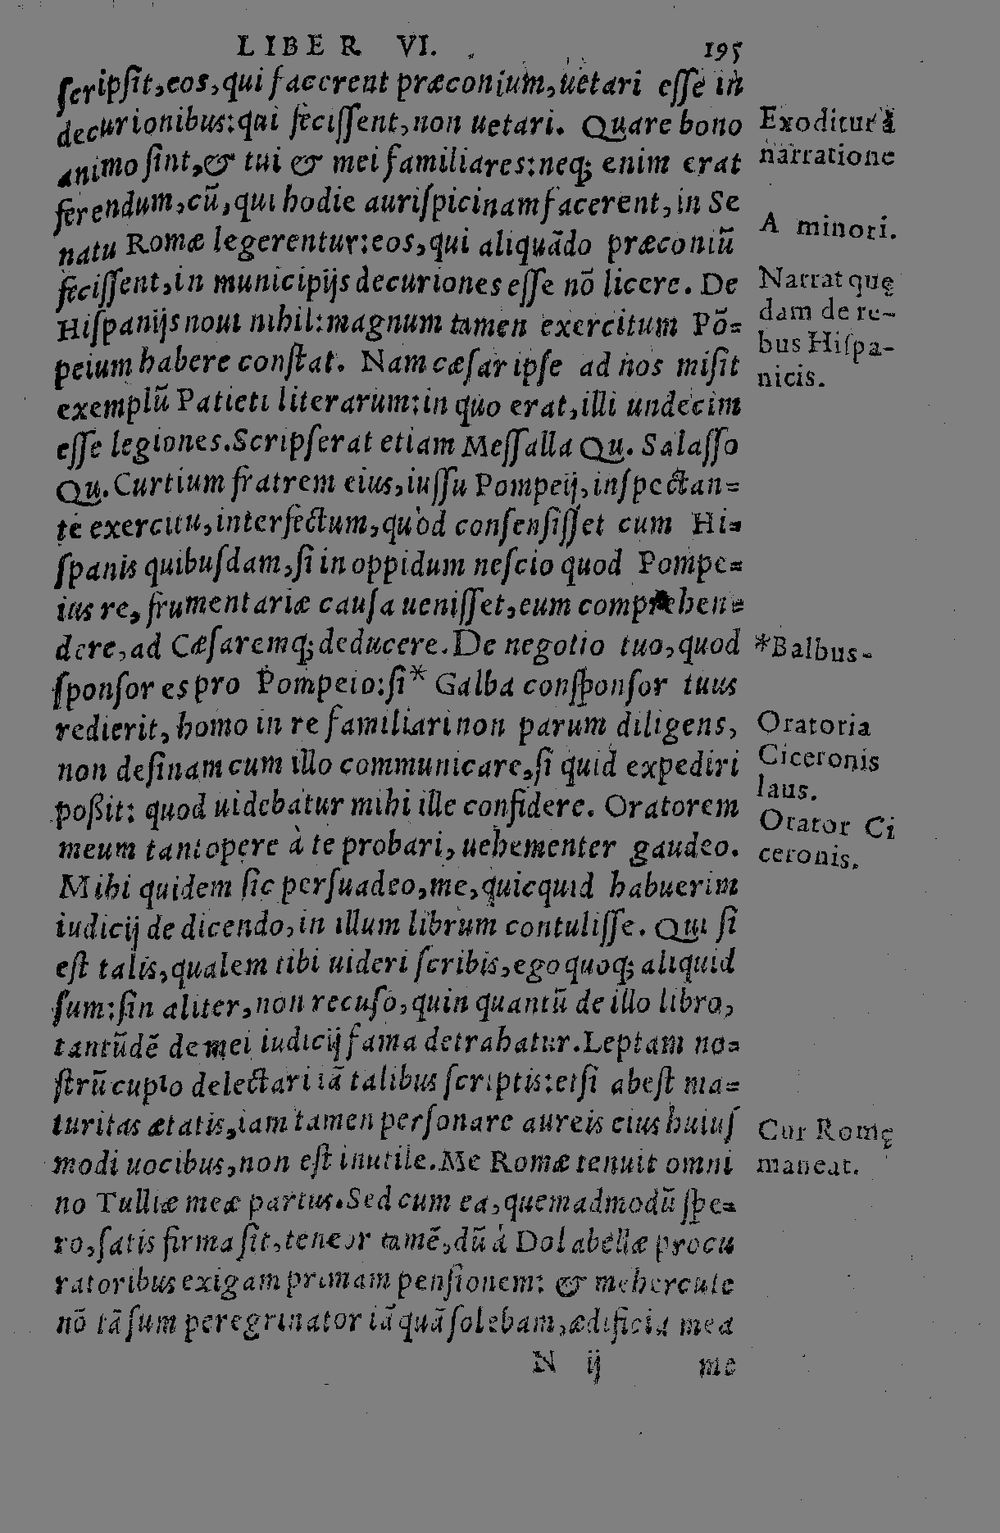 LIBER VI. 195
ſcripſit, eos, qui facerent præconium, uetari eſſe in
decurionibus: qui feciſſent, non uetari. Quare bono
animo ſint, & tui & mei familiares: neq; enim erat
ferendum, cũ, qui hodie auriſpicinam facerent, in Se
natu Romæ legerentur: eos, qui aliquãdo præconiũ
feciſſent, in municipijs decuriones eſſe nõ licere. De
Hiſpanijs noui nihil: magnum tamen exercitum Põ=
peium habere conſtat. Nam cæſar ipſe ad nos miſit
exemplũ Patieti literarum: in quo erat, illi undecim
eſſe legiones. Scripſerat etiam Meſſalla Qu. Salaſſo
Qu. Curtium fratrem eius, iuſſu Pompeij, inſpectan=
te exercitu, interfectum, quòd conſenſiſſet cum Hi=
ſpanis quibuſdam, ſi in oppidum neſcio quod Pompe=
ius re, frumentariæ cauſa ueniſſet, eum comprehen=
dere, ad Cæſaremq; deducere. De negotio tuo, quod
ſponſor es pro Pompeio: ſi* Galba conſponſor tuus
redierit, homo in re familiari non parum diligens,
non deſinam cum illo communicare, ſi quid expediri
poßit: quod uidebatur mihi ille confidere. Oratorem
meum tantopere à te probari, uehementer gaudeo.
Mihi quidem ſic perſuadeo, me, quicquid habuerim
iudicij de dicendo, in illum librum contuliſſe. Qui ſi
eſt talis, qualem tibi uideri ſcribis, ego quoq; aliquid
ſum: ſin aliter, non recuſo, quin quantũ de illo libro,
tantũdẽ de mei iudicij fama detrahatur. Leptam no=
ſtrũ cupio delectari iã talibus ſcriptis: etſi abeſt ma=
turitas ætatis, iam tamen perſonare aureis eius huiuſ
modi uocibus, non eſt inutile. Me Romæ tenuit omni
no Tulliæ meæ partus. Sed cum ea, quemadmodũ ſpe=
ro, ſatis firma ſit, teneor tamẽ, dũ à Dolabellæ procu
ratoribus exigam primam penſionem: & mehercule
nõ tã ſum peregrinator iã quã ſolebam, ædificia mea
N ij me
Exoditur à
narratione
A minori.
Narrat quę
dam de re-
bus Hiſpa-
nicis.
*Balbus-
Oratoria
Ciceronis
laus.
Orator Ci
ceronis.
Cur Romę
maneat.